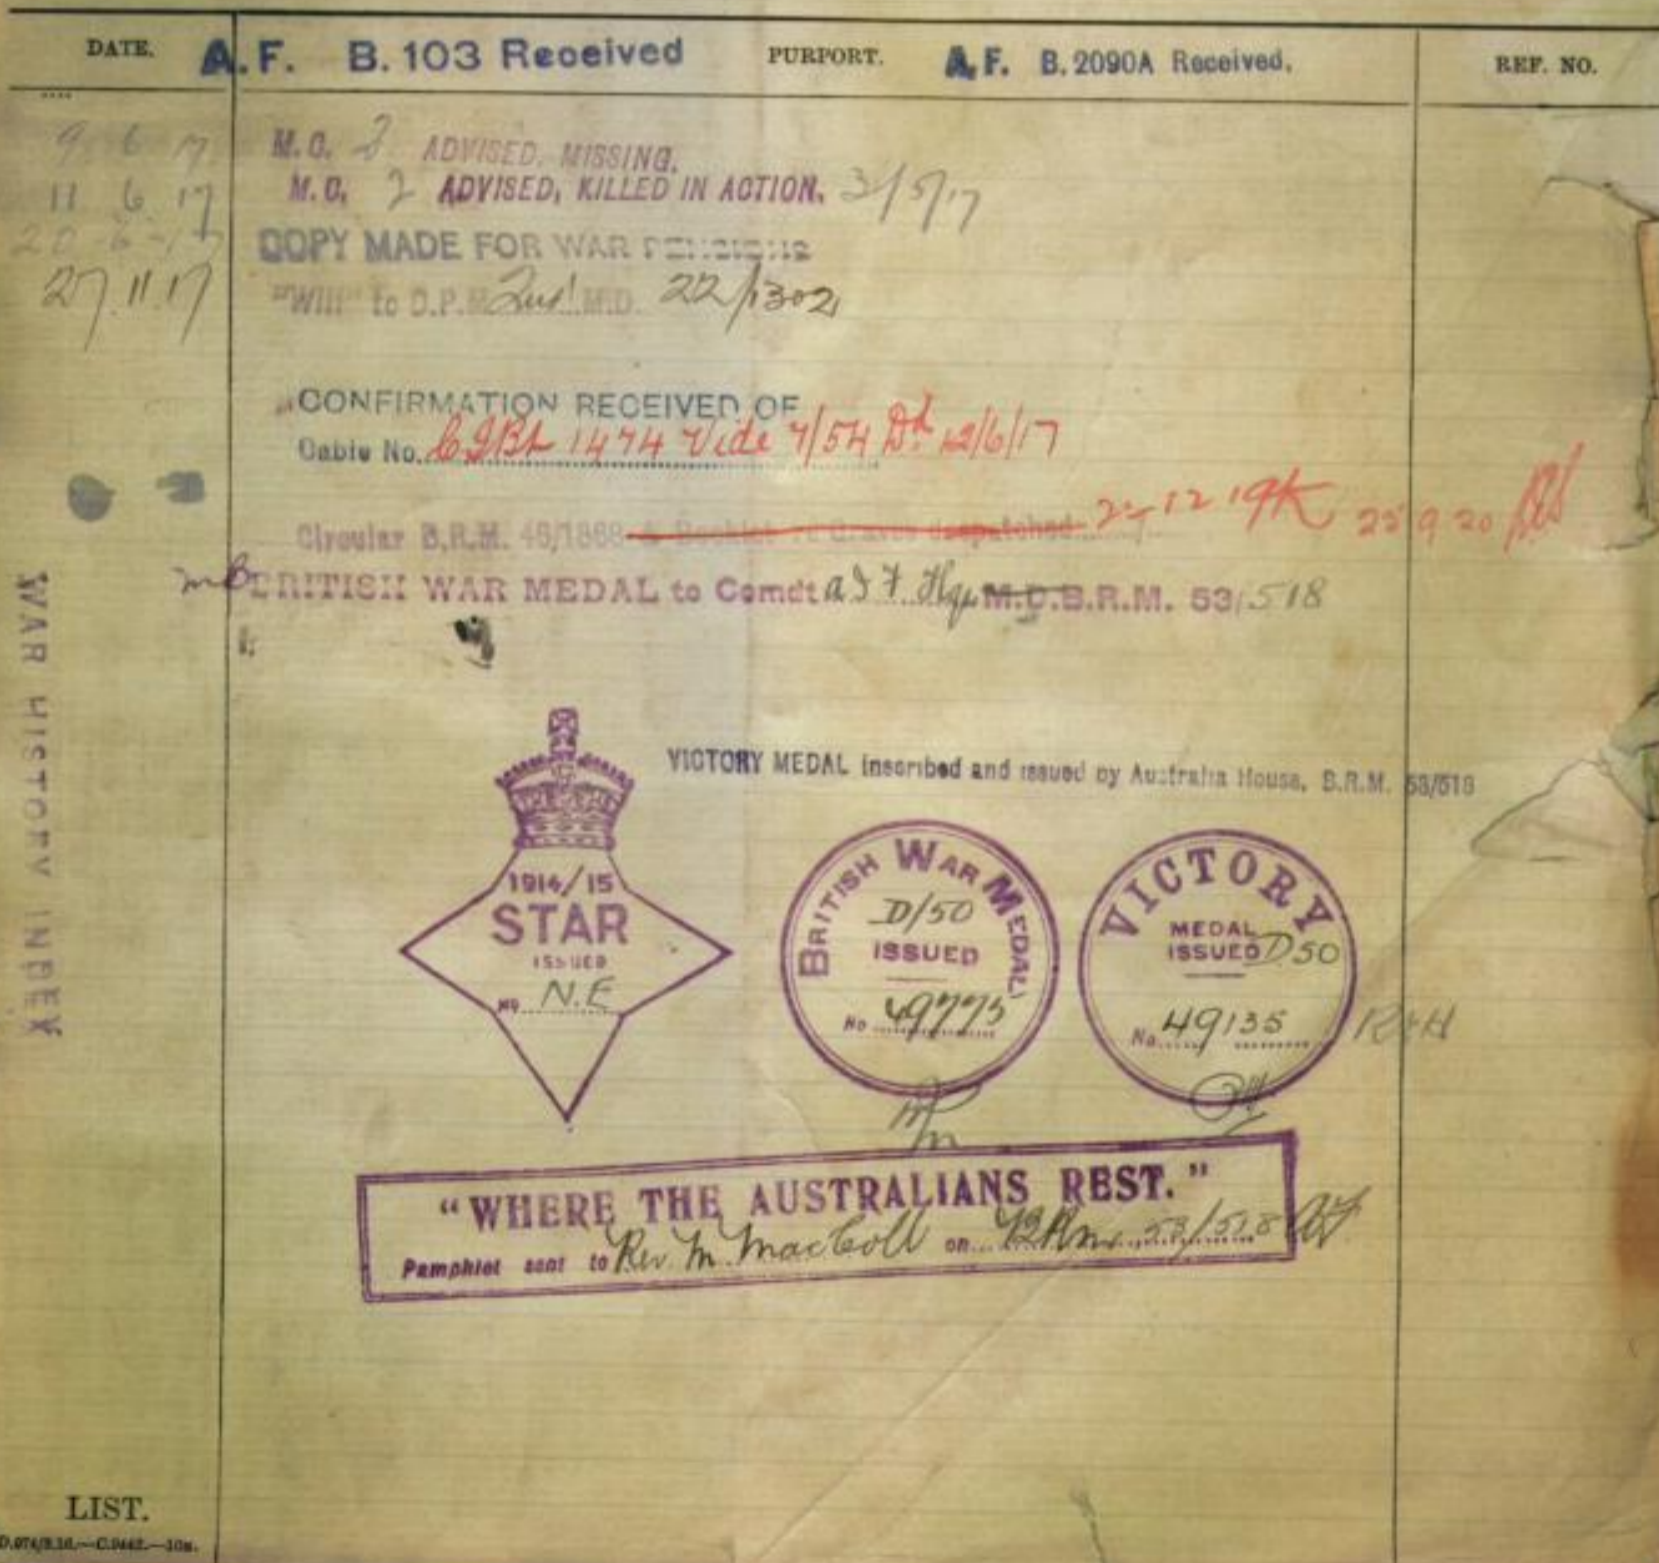 DATE. A.F. B.103 Received PURPORT. A.F. B.2090A Received. REF. NO.
9 6 17 M.C. 2 ADVISED, MISSING.
11 6 17 M.C. 2 ADVISED, KILLED IN ACTION, 3/5/17
20-6-17 COPY MADE FOR WAR PENSIONS
27.11.17 "Will" to D.P.M. 2nd M.D. 22/1302
CONFIRMATION RECEIVED OF
Cable No. 1474 Vide 7/54 Dd 12/6/17
Circular B.R.M. 46/1868 & Booklet re Graves despatched 22 12 19 25 9 20
BRITISH WAR MEDAL to Comdt A I F Hqs M.D.B.R.M. 53/518
VICTORY MEDAL inscribed and issued by Australia House, B.R.M. 53/518
1914/15
STAR
ISSUED
No. N.E
BRITISH WAR MEDAL
D/50
ISSUED
No 49775
VICTORY
MEDAL
ISSUED D50
No. 49135
"WHERE THE AUSTRALIANS REST."
Pamphlet sent to Rev. M. MacColl on BRM 53/518
WAR HISTORY INDEX
LIST.